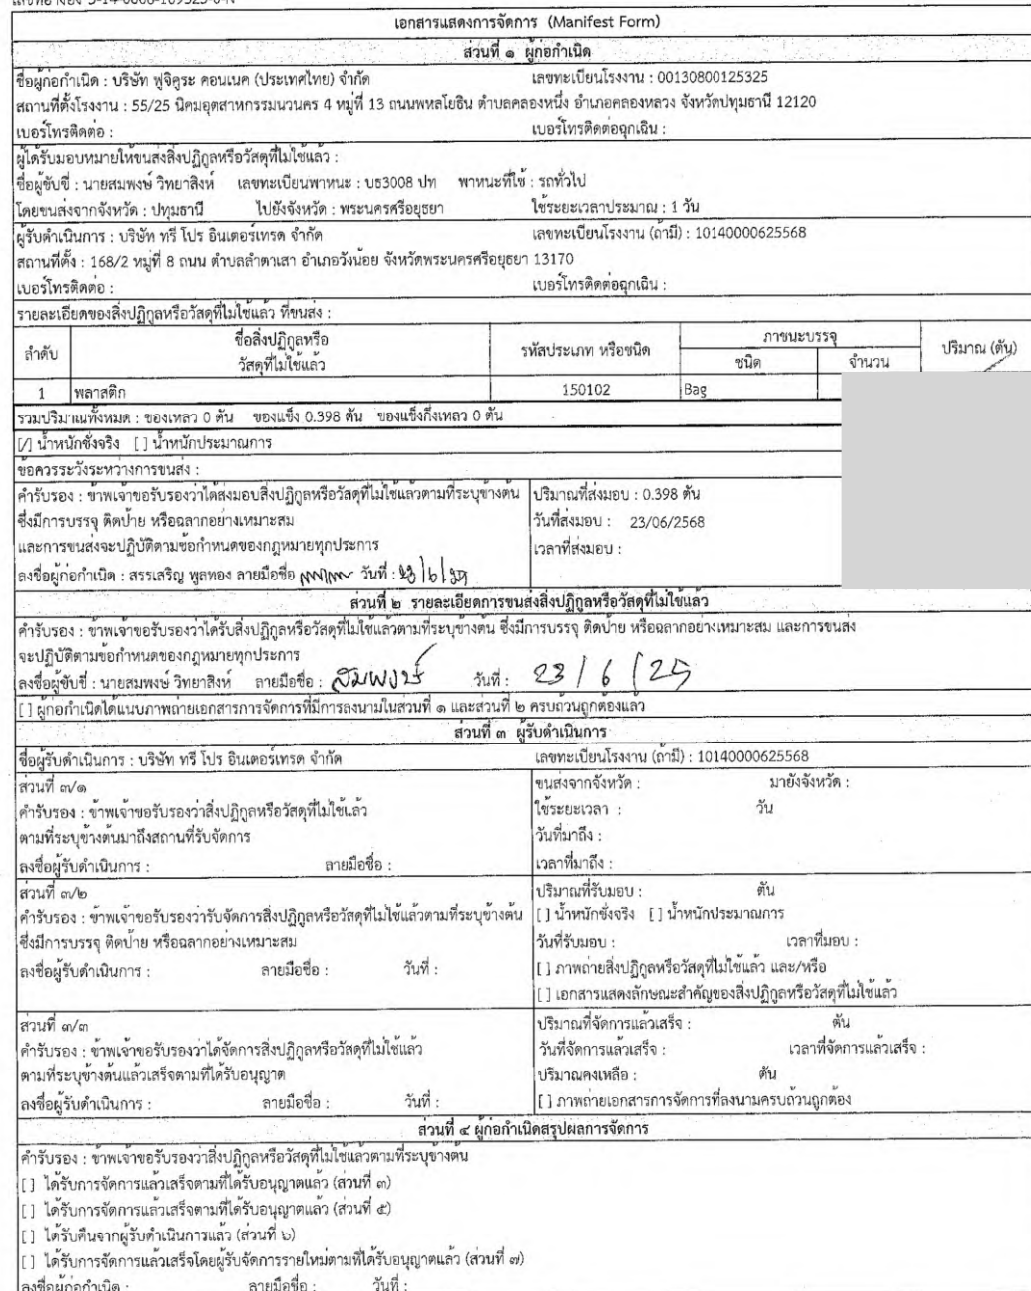 เอกสารแสดงการจัดการ (Manifest Form)
ส่วนที่ ๑ ผู้ก่อกำเนิด
ชื่อผู้ก่อกำเนิด : บริษัท ฟูจิคูระ คอนเนค (ประเทศไทย) จำกัด เลขทะเบียนโรงงาน : 00130800125325
สถานที่ตั้งโรงงาน : 55/25 นิคมอุตสาหกรรมนวนคร 4 หมู่ที่ 13 ถนนพหลโยธิน ตำบลคลองหนึ่ง อำเภอคลองหลวง จังหวัดปทุมธานี 12120
เบอร์โทรติดต่อ : เบอร์โทรติดต่อฉุกเฉิน :
ผู้ได้รับมอบหมายให้ขนส่งสิ่งปฏิกูลหรือวัสดุที่ไม่ใช้แล้ว :
ชื่อผู้ขับขี่ : นายสมพงษ์ วิทยาสิงห์ เลขทะเบียนพาหนะ : บธ3008 ปท พาหนะที่ใช้ : รถทั่วไป
โดยขนส่งจากจังหวัด : ปทุมธานี ไปยังจังหวัด : พระนครศรีอยุธยา ใช้ระยะเวลาประมาณ : 1 วัน
ผู้รับดำเนินการ : บริษัท ทรี โปร อินเตอร์เทรด จำกัด เลขทะเบียนโรงงาน (ถ้ามี) : 10140000625568
สถานที่ตั้ง : 168/2 หมู่ที่ 8 ถนน ตำบลลำตาเสา อำเภอวังน้อย จังหวัดพระนครศรีอยุธยา 13170
เบอร์โทรติดต่อ : เบอร์โทรติดต่อฉุกเฉิน :
รายละเอียดของสิ่งปฏิกูลหรือวัสดุที่ไม่ใช้แล้ว ที่ขนส่ง :
ลำดับ ชื่อสิ่งปฏิกูลหรือ วัสดุที่ไม่ใช้แล้ว รหัสประเภท หรือชนิด ภาชนะบรรจุ ชนิด จำนวน ปริมาณ (ตัน)
1 พลาสติก 150102 Bag
รวมปริมาณทั้งหมด : ของเหลว 0 ตัน ของแข็ง 0.398 ตัน ของแข็งกึ่งเหลว 0 ตัน
[/] น้ำหนักชั่งจริง [ ] น้ำหนักประมาณการ
ข้อควรระวังระหว่างการขนส่ง :
คำรับรอง : ข้าพเจ้าขอรับรองว่าได้ส่งมอบสิ่งปฏิกูลหรือวัสดุที่ไม่ใช้แล้วตามที่ระบุข้างต้น ปริมาณที่ส่งมอบ : 0.398 ตัน
ซึ่งมีการบรรจุ ติดป้าย หรือฉลากอย่างเหมาะสม วันที่ส่งมอบ : 23/06/2568
และการขนส่งจะปฏิบัติตามข้อกำหนดของกฎหมายทุกประการ เวลาที่ส่งมอบ :
ลงชื่อผู้ก่อกำเนิด : สรรเสริญ พูลทอง ลายมือชื่อ วันที่ :
ส่วนที่ ๒ รายละเอียดการขนส่งสิ่งปฏิกูลหรือวัสดุที่ไม่ใช้แล้ว
คำรับรอง : ข้าพเจ้าขอรับรองว่าได้รับสิ่งปฏิกูลหรือวัสดุที่ไม่ใช้แล้วตามที่ระบุข้างต้น ซึ่งมีการบรรจุ ติดป้าย หรือฉลากอย่างเหมาะสม และการขนส่ง
จะปฏิบัติตามข้อกำหนดของกฎหมายทุกประการ
ลงชื่อผู้ขับขี่ : นายสมพงษ์ วิทยาสิงห์ ลายมือชื่อ : สมพงษ์ วันที่ : 23 / 6 / 25
[ ] ผู้ก่อกำเนิดได้แนบภาพถ่ายเอกสารการจัดการที่มีการลงนามในส่วนที่ ๑ และส่วนที่ ๒ ครบถ้วนถูกต้องแล้ว
ส่วนที่ ๓ ผู้รับดำเนินการ
ชื่อผู้รับดำเนินการ : บริษัท ทรี โปร อินเตอร์เทรด จำกัด เลขทะเบียนโรงงาน (ถ้ามี) : 10140000625568
ส่วนที่ ๓/๑ ขนส่งจากจังหวัด : มายังจังหวัด :
คำรับรอง : ข้าพเจ้าขอรับรองว่าสิ่งปฏิกูลหรือวัสดุที่ไม่ใช้แล้ว ใช้ระยะเวลา : วัน
ตามที่ระบุข้างต้นมาถึงสถานที่รับจัดการ วันที่มาถึง :
ลงชื่อผู้รับดำเนินการ : ลายมือชื่อ : เวลาที่มาถึง :
ส่วนที่ ๓/๒ ปริมาณที่รับมอบ : ตัน
คำรับรอง : ข้าพเจ้าขอรับรองว่ารับจัดการสิ่งปฏิกูลหรือวัสดุที่ไม่ใช้แล้วตามที่ระบุข้างต้น [ ] น้ำหนักชั่งจริง [ ] น้ำหนักประมาณการ
ซึ่งมีการบรรจุ ติดป้าย หรือฉลากอย่างเหมาะสม วันที่รับมอบ : เวลาที่มอบ :
ลงชื่อผู้รับดำเนินการ : ลายมือชื่อ : วันที่ : [ ] ภาพถ่ายสิ่งปฏิกูลหรือวัสดุที่ไม่ใช้แล้ว และ/หรือ
[ ] เอกสารแสดงลักษณะสำคัญของสิ่งปฏิกูลหรือวัสดุที่ไม่ใช้แล้ว
ส่วนที่ ๓/๓ ปริมาณที่จัดการแล้วเสร็จ : ตัน
คำรับรอง : ข้าพเจ้าขอรับรองว่าได้จัดการสิ่งปฏิกูลหรือวัสดุที่ไม่ใช้แล้ว วันที่จัดการแล้วเสร็จ : เวลาที่จัดการแล้วเสร็จ :
ตามที่ระบุข้างต้นแล้วเสร็จตามที่ได้รับอนุญาต ปริมาณคงเหลือ : ตัน
ลงชื่อผู้รับดำเนินการ : ลายมือชื่อ : วันที่ : [ ] ภาพถ่ายเอกสารการจัดการที่ลงนามครบถ้วนถูกต้อง
ส่วนที่ ๔ ผู้ก่อกำเนิดสรุปผลการจัดการ
คำรับรอง : ข้าพเจ้าขอรับรองว่าสิ่งปฏิกูลหรือวัสดุที่ไม่ใช้แล้วตามที่ระบุข้างต้น
[ ] ได้รับการจัดการแล้วเสร็จตามที่ได้รับอนุญาตแล้ว (ส่วนที่ ๓)
[ ] ได้รับการจัดการแล้วเสร็จตามที่ได้รับอนุญาตแล้ว (ส่วนที่ ๕)
[ ] ได้รับคืนจากผู้รับดำเนินการแล้ว (ส่วนที่ ๖)
[ ] ได้รับการจัดการแล้วเสร็จโดยผู้รับจัดการรายใหม่ตามที่ได้รับอนุญาตแล้ว (ส่วนที่ ๗)
ลงชื่อผู้ก่อกำเนิด : ลายมือชื่อ : วันที่ :